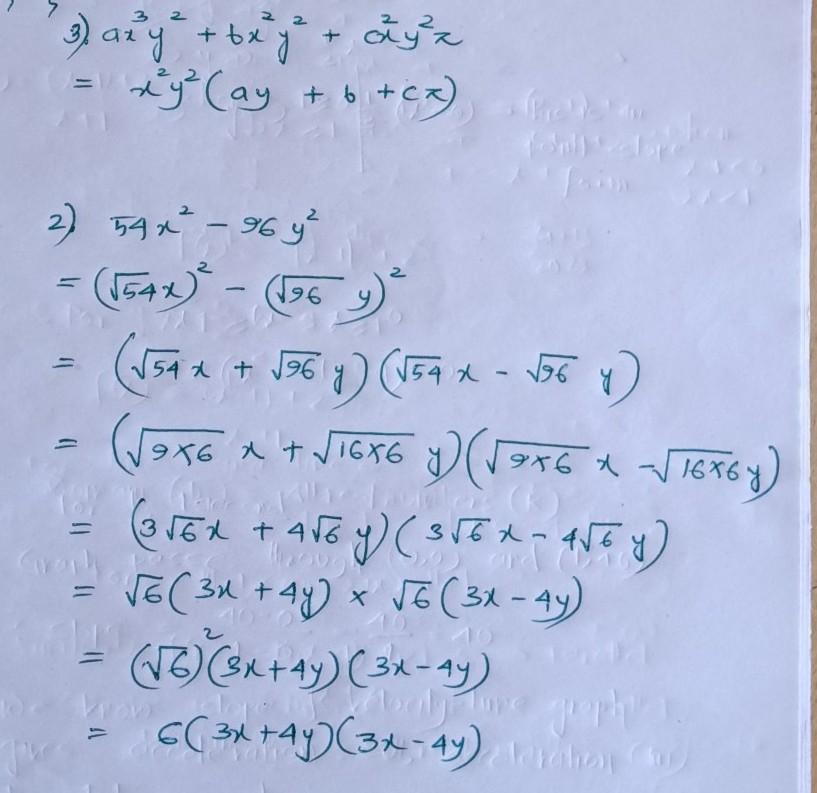 3) ax³y² + bx²y² + cx²y²z
= x²y²(ay + b + cz)
2) 54x² - 96y²
= (√54x)² - (√96 y)²
= (√54 x + √96 y)(√54 x - √96 y)
= (√9×6 x + √16×6 y)(√9×6 x - √16×6 y)
= (3√6x + 4√6 y)(3√6 x - 4√6 y)
= √6(3x + 4y) × √6(3x - 4y)
= (√6)²(3x+4y)(3x-4y)
= 6(3x+4y)(3x-4y)